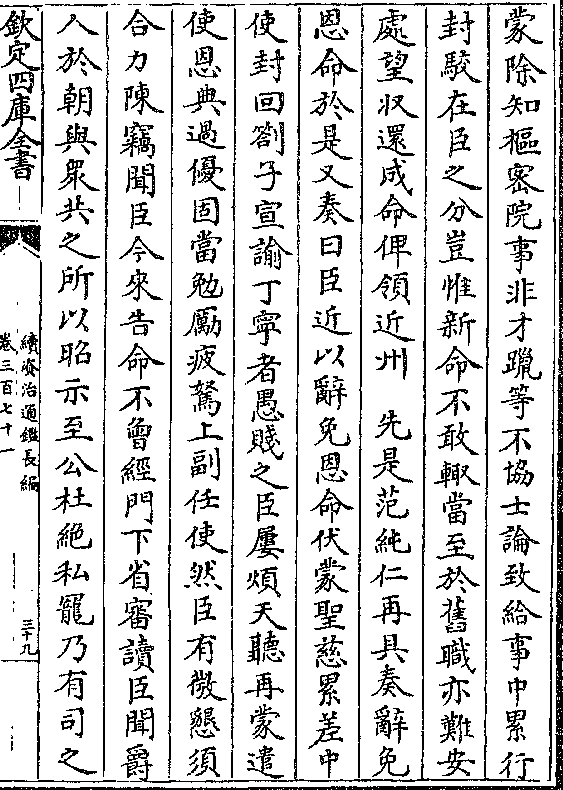 蒙除知樞密院事非才躐等不協士論致給事中累行
封駁在臣之分豈惟新命不敢輒當至於舊職亦難安
處望收還成命俾領近州　先是范純仁再具奏辭免
恩命於是又奏曰臣近以辭免恩命伏蒙聖慈累差中
使封回劄子宣諭丁寧者愚賤之臣屢煩天聽再蒙遣
使恩典過優固當勉勵疲駑上副任使然臣有微懇須
合力陳竊聞臣今來告命不曾經門下省審讀臣聞爵
人於朝與衆共之所以昭示至公杜絶私寵乃有司之
欽定四庫全書
續資治通鑑長編
卷三百七十一
三十九